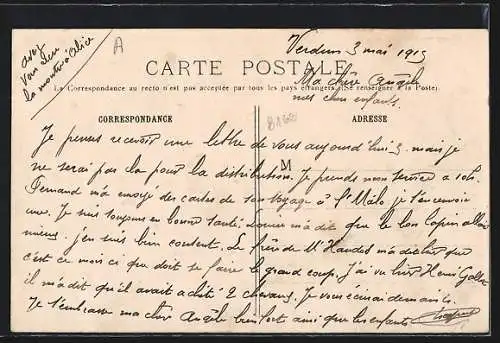 avez
vous lieu
la montre à Alice
A
Verdun 3 mai 1915
CARTE POSTALE
Ma chère Angèle
La Correspondance au recto n'est pas acceptée par tous les pays étrangers (Se renseigner à la Poste)
mes chers enfants.
CORRESPONDANCE
ADRESSE
M
Je pense recevoir une lettre de vous aujourd'hui 3. mais je
ne serai pas là pour la distribution. Je prends mon service à 10h.
Fernand m'a envoyé des cartes de son voyage à St Malo, je t'en envoie
une. Je suis toujours en bonne santé. m'a dit que le bon lapin allait
mieux. j'en suis bien content. Le frère de Mr m'a dit que
c'est ce mois ci que doit se faire le grand coup. J'ai vu hier Henri
il m'a dit qu'il avait acheté 2 chevaux. Je vous écrirai demain.
Je t'embrasse ma chère Angèle bien fort ainsi que les enfants